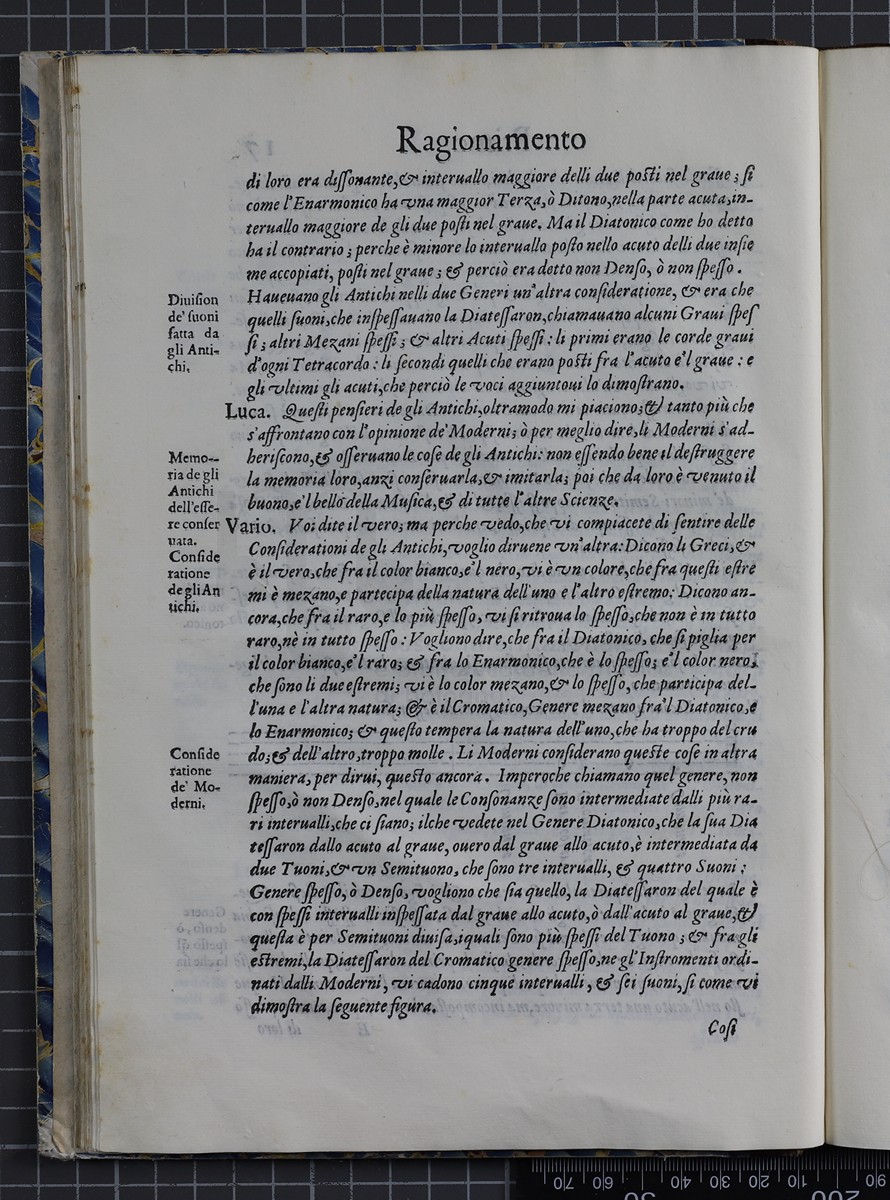 Ragionamento
di loro era dissonante,& interuallo maggiore delli due posti nel graue; si
come l'Enarmonico ha vna maggior Terza,ò Ditono,nella parte acuta,in-
teruallo maggiore de gli due posti nel graue. Ma il Diatonico come ho detto
ha il contrario; perche è minore lo interuallo posto nello acuto delli due insie
me accopiati, posti nel graue; & perciò era detto non Denso, ò non spesso.
Diuision
de' suoni
fatta da
gli Anti-
chi.
Haueuano gli Antichi nelli due Generi un'altra consideratione, & era che
quelli suoni,che inspessauano la Diatessaron,chiamauano alcuni Graui spes
si; altri Mezani spessi; & altri Acuti spessi: li primi erano le corde graui
d'ogni Tetracordo: li secondi quelli che erano posti fra l'acuto e'l graue: e
gli vltimi gli acuti,che perciò le voci aggiuntoui lo dimostrano.
Luca. Questi pensieri de gli Antichi,oltramodo mi piaciono;& tanto più che
s'affrontano con l'opinione de' Moderni; ò per meglio dire,li Moderni s'ad-
heriscono,& osseruano le cose de gli Antichi: non essendo bene il destruggere
la memoria loro,anzi conseruarla,& imitarla; poi che da loro è venuto il
buono,e'l bello della Musica,& di tutte l'altre Scienze.
Memo-
ria de gli
Antichi
dell'esse-
re conser
uata.
Vario. Voi dite il vero; ma perche vedo,che vi compiacete di sentire delle
Considerationi de gli Antichi,voglio diruene vn'altra: Dicono li Greci,&
è il vero,che fra il color bianco,e'l nero,vi è vn colore,che fra questi estre
mi è mezano,e partecipa della natura dell'uno e l'altro estremo: Dicono an-
cora,che fra il raro,e lo più spesso, vi si ritroua lo spesso,che non è in tutto
raro,nè in tutto spesso: Vogliono dire,che fra il Diatonico, che si piglia per
il color bianco,e'l raro; & fra lo Enarmonico,che è lo spesso; e'l color nero,
che sono li due estremi; vi è lo color mezano,& lo spesso, che participa del-
l'una e l'altra natura; & è il Cromatico,Genere mezano fra'l Diatonico,e
lo Enarmonico; & questo tempera la natura dell'uno,che ha troppo del cru
do;& dell'altro,troppo molle. Li Moderni considerano queste cose in altra
maniera,per dirui, questo ancora. Imperoche chiamano quel genere, non
spesso,ò non Denso,nel quale le Consonanze sono intermediate dalli più ra-
ri interualli,che ci siano; ilche vedete nel Genere Diatonico,che la sua Dia
tessaron dallo acuto al graue, ouero dal graue allo acuto,è intermediata da
due Tuoni,& vn Semituono, che sono tre interualli, & quattro Suoni;
Genere spesso, ò Denso, vogliono che sia quello, la Diatessaron del quale è
con spessi interualli inspessata dal graue allo acuto,ò dall'acuto al graue,&
questa è per Semituoni diuisa,iquali sono più spessi del Tuono; & fra gli
estremi,la Diatessaron del Cromatico genere spesso,ne gl'Instromenti ordi-
nati dalli Moderni, vi cadono cinque interualli, & sei suoni, si come vi
dimostra la seguente figura.
Conside
ratione
de gli An
tichi.
Conside
ratione
de' Mo-
derni.
Cosi